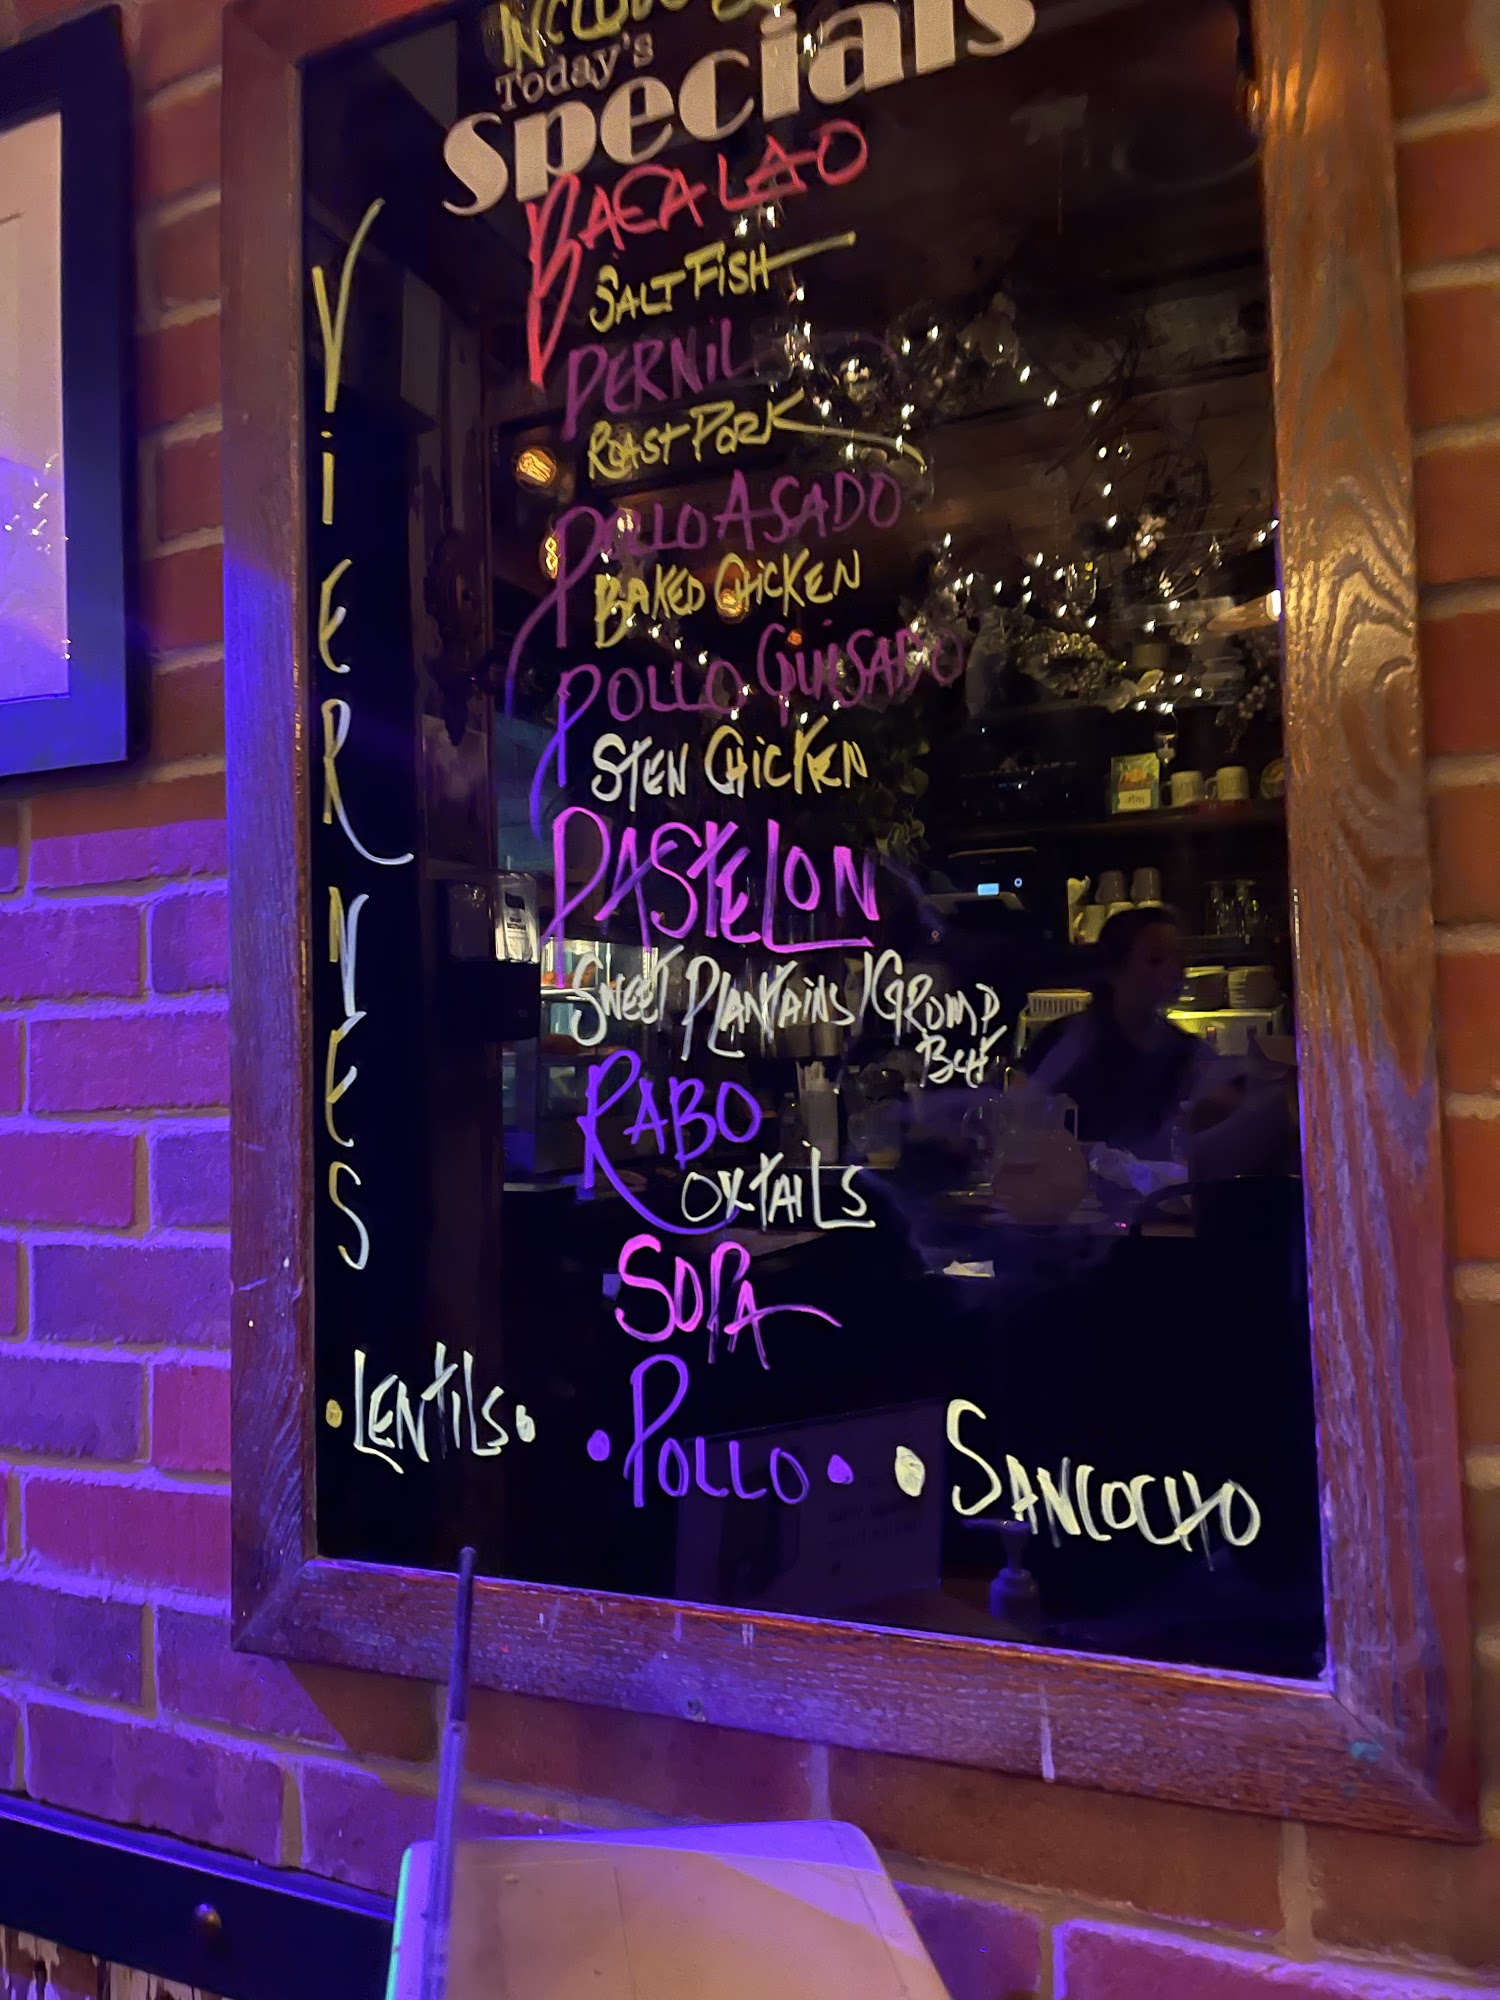 Today's
Specials
BACALAO
SALTFISH
PERNIL
ROAST PORK
POLLO ASADO
BAKED CHICKEN
POLLO GUISADO
STEN CHICKEN
PASTELON
SWEET PLANTAINS/GROMD
BEEF
RABO
OXTAILS
SOPA
•LENTILS• •POLLO• •SANCOCHO
VIERNES